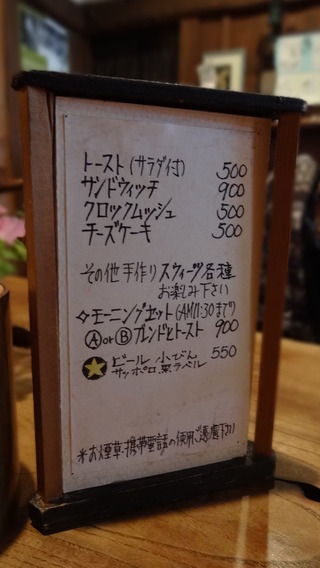 トースト(サラダ付) 500
サンドウィッチ 900
クロックムッシュ 500
チーズケーキ 500
その他手作りスウィーツ各種
お楽しみ下さい
◇モーニングセット(AM11:30まで)
Ⓐ or Ⓑ ブレンドとトースト 900
ビール 小びん 550
サッポロ黒ラベル
※お煙草・携帯電話の使用ご遠慮下さい